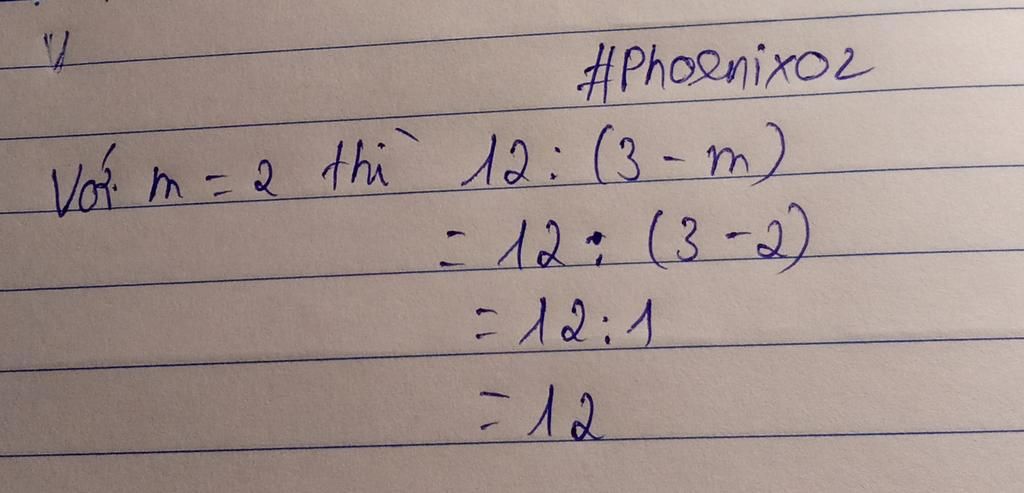 #Phoenix02
Với m = 2 thì 12 : (3 - m)
= 12 : (3 - 2)
= 12 : 1
= 12